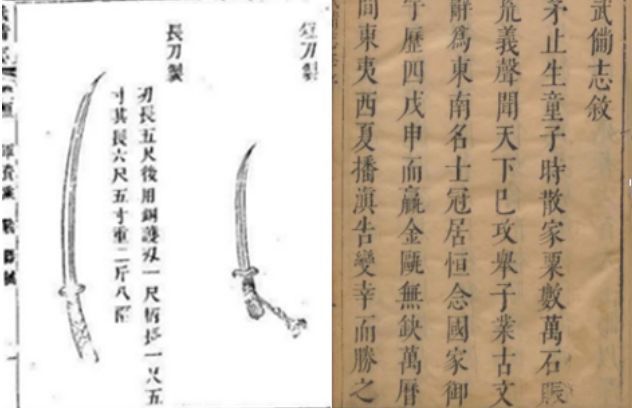 武備志敘
茅止生童子時散家粟數萬石賑
荒義聲聞天下已攻舉子業古文
辭為東南名士冠居恒念國家御
宇歷四戊申而贏金甌無缺萬曆
間東夷西夏播滇告變幸而勝之
短刀製
長刀製
刃長五尺後用銅護刃一尺柄長一尺五
寸其長六尺五寸重二斤八兩